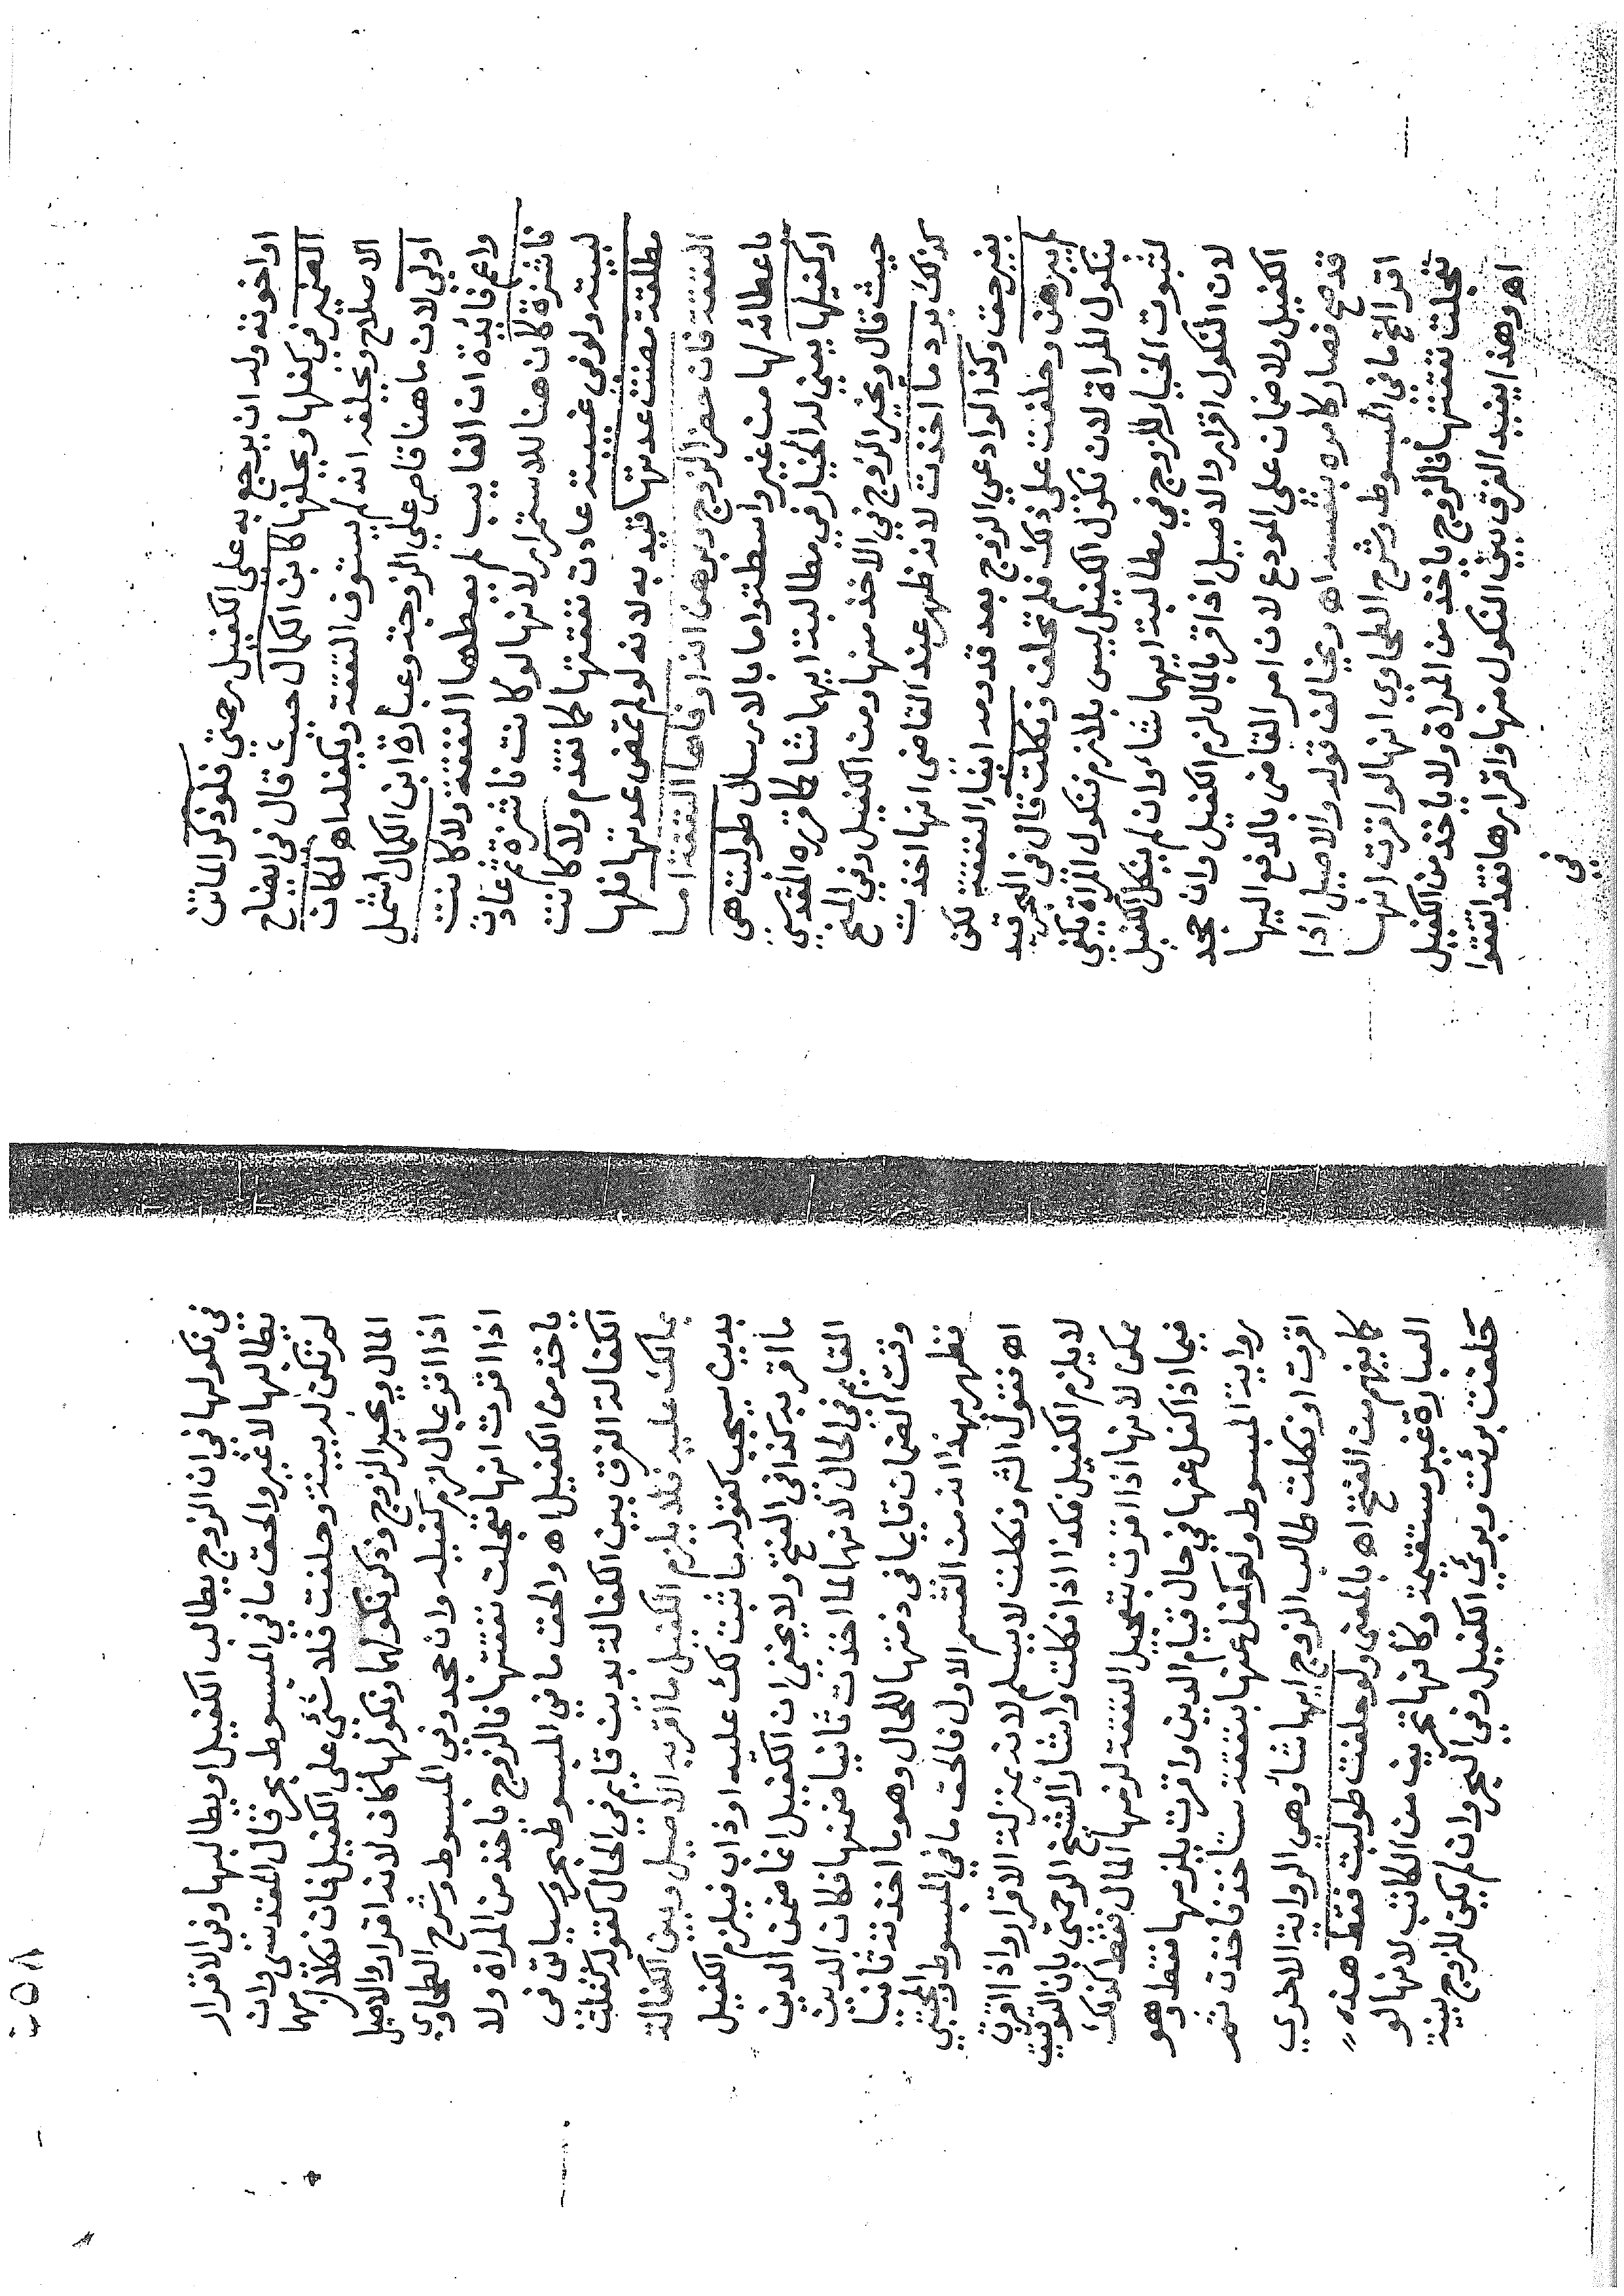 او اخونه وله ان يرجع به على الكفيل رحمتي فلو ذكر الماتن
الضمير في كفلها ويحلفها كابن الكمال حيث قال في ايضاح
الاصلاح ويحلفه انه لم يستوف النفقة ويكفله اه لكان
اولى لان ما هنا قاصر على الزوجة وعبارة ابن الكمال تشمل
واعم فائدة ان الغايب لم يعطها النفقة ولا كانت
ناشزة كان هنا للاستمرار لانها لو كانت ناشزة ثم عادت
لبيته ولو في غيبته عادت نفقتها كما تقدم ولا كانت
مطلقة مضت عدتها قيد به لانه لو لم تمض عدتها فلها
النفقة فان حضر الزوج وبرهن انه اوفاها النفقة اما
باعطائه لها من غير واسطة واما بالارسال طولبت هي
او كفيلها يعني له الخيار في مطالبة ايهما شا كما قرره المقدسي
حيث قال ويخير الزوج في الاخذ منها ومن الكفيل وفي المنح
كذلك برد ما اخذت لانه ظهر عند القاضي انها اخذت
بغير حق وكذا لو ادعى الزوج بعد قدومه ايفاء النفقة لكن
لم يبرهن وحلفت على ذلك فلم تحلف ونكلت قال في البحر قيد
بنكول المراة لان نكول الكفيل ليس بلازم فنكول المراة يكفي
لثبوت الخيار للزوج في مطالبة ايهما شاء وان لم ينكل الكفيل
لان النكول اقرار والاصيل اذا اقر بالمال لزم الكفيل وان جحد
الكفيل ولا ضمان على المودع لان امر القاضي بالدفع اليها
قد صح فصار كامره بنفسه اه ويخالف قوله والاصيل اذا
اقر الخ ما في المبسوط وشرح الطحاوي انها لو اقرت انها
تعجلت نفقتها فالزوج ياخذ من المراة ولا ياخذ من الكفيل
اه وهذا يفيد الفرق بين النكول منها واقرارها فقد اتفقوا
في
٢٥٨
في نكولها في ان الزوج يطالب الكفيل او يطالبها وفي الاقرار
يطالبها لا غير والحق ما في المبسوط بحر قال المقدسي وان
لم تكن له بينة وحلفت فلا شئ على الكفيل فان نكلا لزمهما
المال ويخير الزوج وذكر نكولهما ونكولها كاف لانه اقرار والاصيل
اذا اقر بمال لزم كفيله وان جحد وفي المبسوط وشرح الطحاوي
اذا اقرت انها تعجلت نفقتها فالزوج ياخذ من المراة ولا
ياخذ من الكفيل اه والحق ما في المبسوط بحر وسياتي في
الكفالة الفرق بين الكفالة بدين قايم في الحال كقوله كفلت
بما لك عليه فلا يلزم الكفيل ما اقر به الاصيل وبين الكفالة
بدين سيجب كقوله ما ثبت لك عليه او ذاب فيلزم الكفيل
ما اقر به كذا في الفتح ولا يخفى ان الكفيل انما ضمن الدين
القايم في الحال لانهما لما اخذت ثانيا ضمنها فكان الدين
وقت الضمان قايما في ذمتها للحال وهو ما اخذته ثانيا
فظهر بهذا انه من القسم الاول فالحق ما في المبسوط والمجتبى
اه فنقول الشر ونكلت لا يسلم لانه بمنزلة الاقرار واذا اقرت
لا يلزم الكفيل فكذا اذا نكلت واشار الشيخ الرحمتي بان التوفيق
ممكن لانها اذا اقرت بتعجيل النفقة لزمها المال فقط كذلك
فيما اذا كفل عنها في حال قيام الدين واقرت يلزمها فقط وهو
رواية المبسوط ولو كفل عنها بنفقة ستاخذ فاخذت ثم
اقرت او نكلت طالب الزوج ايهما شا وهي الرواية الاخرى
كما يفهم من الفتح اه بالمعنى ولو حلفت طولبت فقط هذه
العبارة غير مستقيمة وكانها تحريف من الكاتب لانها لو
حلفت برئت وبرئ الكفيل وفي البحر وان لم يكن للزوج بينة